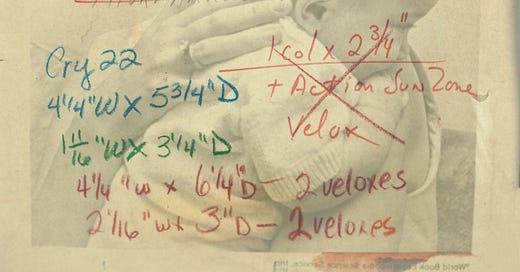 1 col x 2 3/4"
+ Action Sun Zone
Velox
Cry 22
4 1/4" W x 5 3/4" D
1 11/16" W x 3 1/4" D
4 1/4" W x 6 1/4" D — 2 veloxes
2 1/16" W x 3" D — 2 veloxes
"World Book the Science Service, Inc.